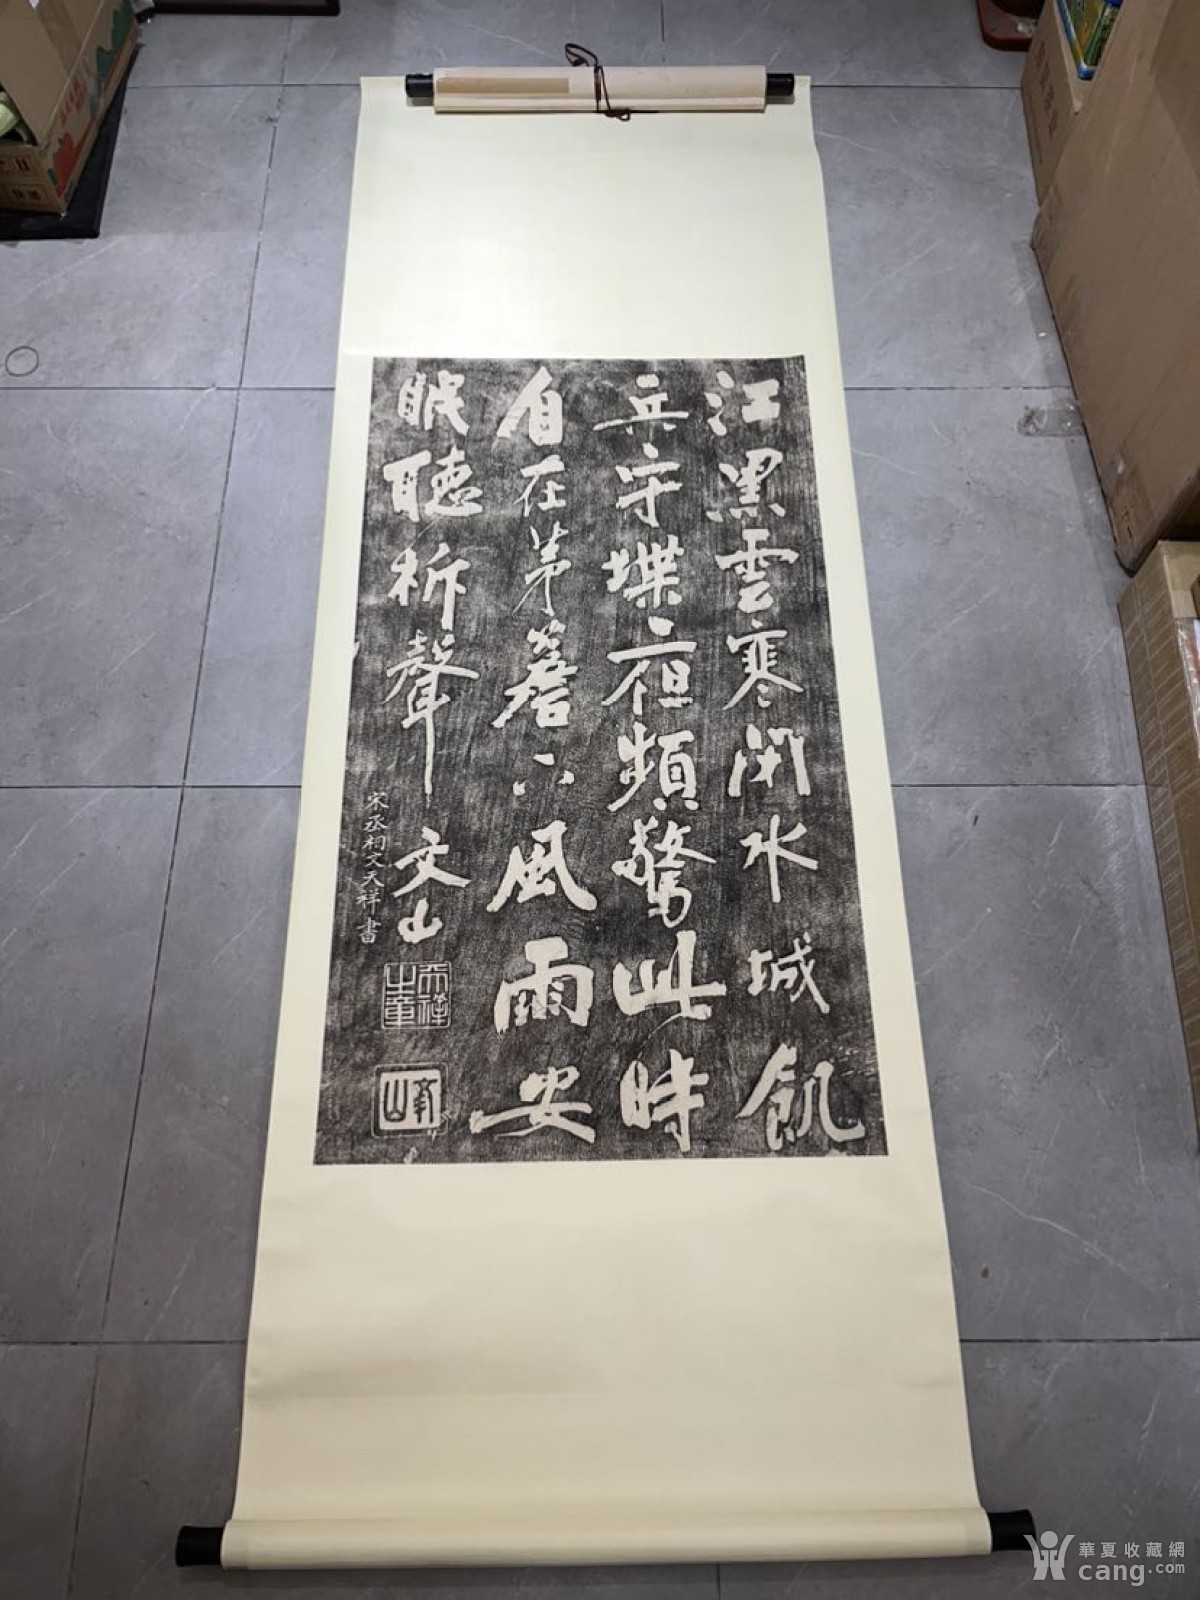 江黑雲寒閉水城飢
兵守堞夜頻驚此時
自在茅簷下風雨安
眠聽柝聲 文山
天祥之章
宋丞相文天祥書
華夏收藏網
cang.com